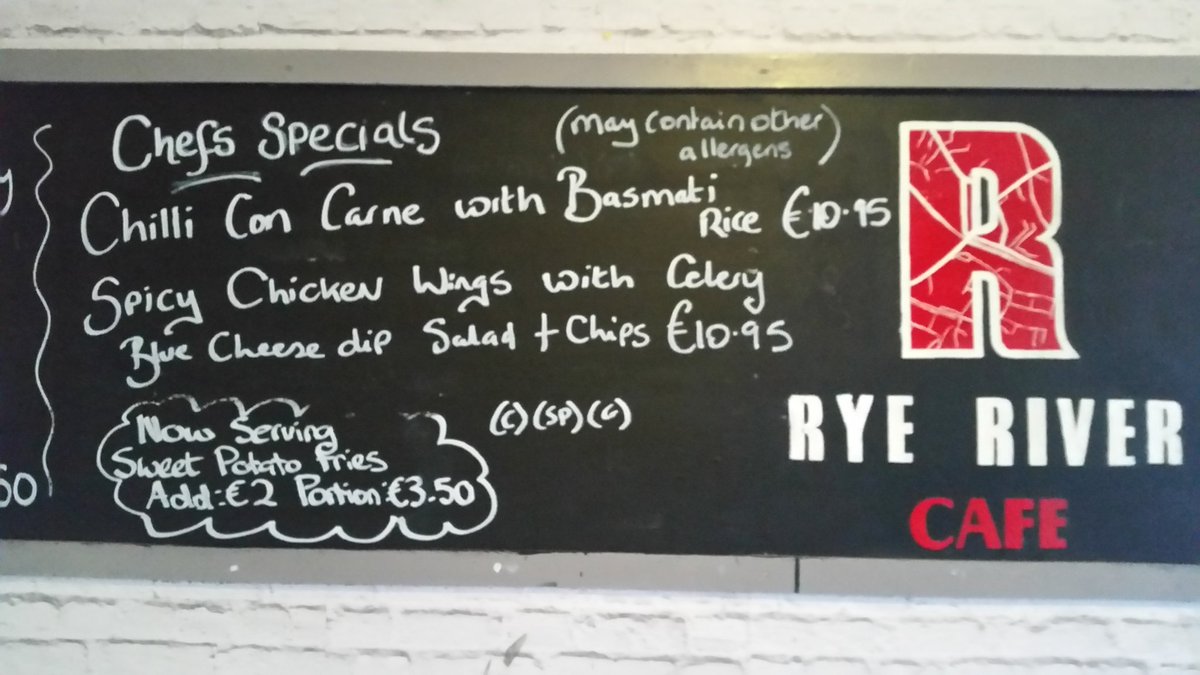 Chefs Specials
(May contain other
allergens)
Chilli Con Carne with Basmati
Rice €10.95
Spicy Chicken Wings with Celery
Blue Cheese dip Salad + Chips €10.95
(C) (SP) (G)
Now Serving
Sweet Potato Fries
Add: €2 Portion: €3.50
R
RYE RIVER
CAFE